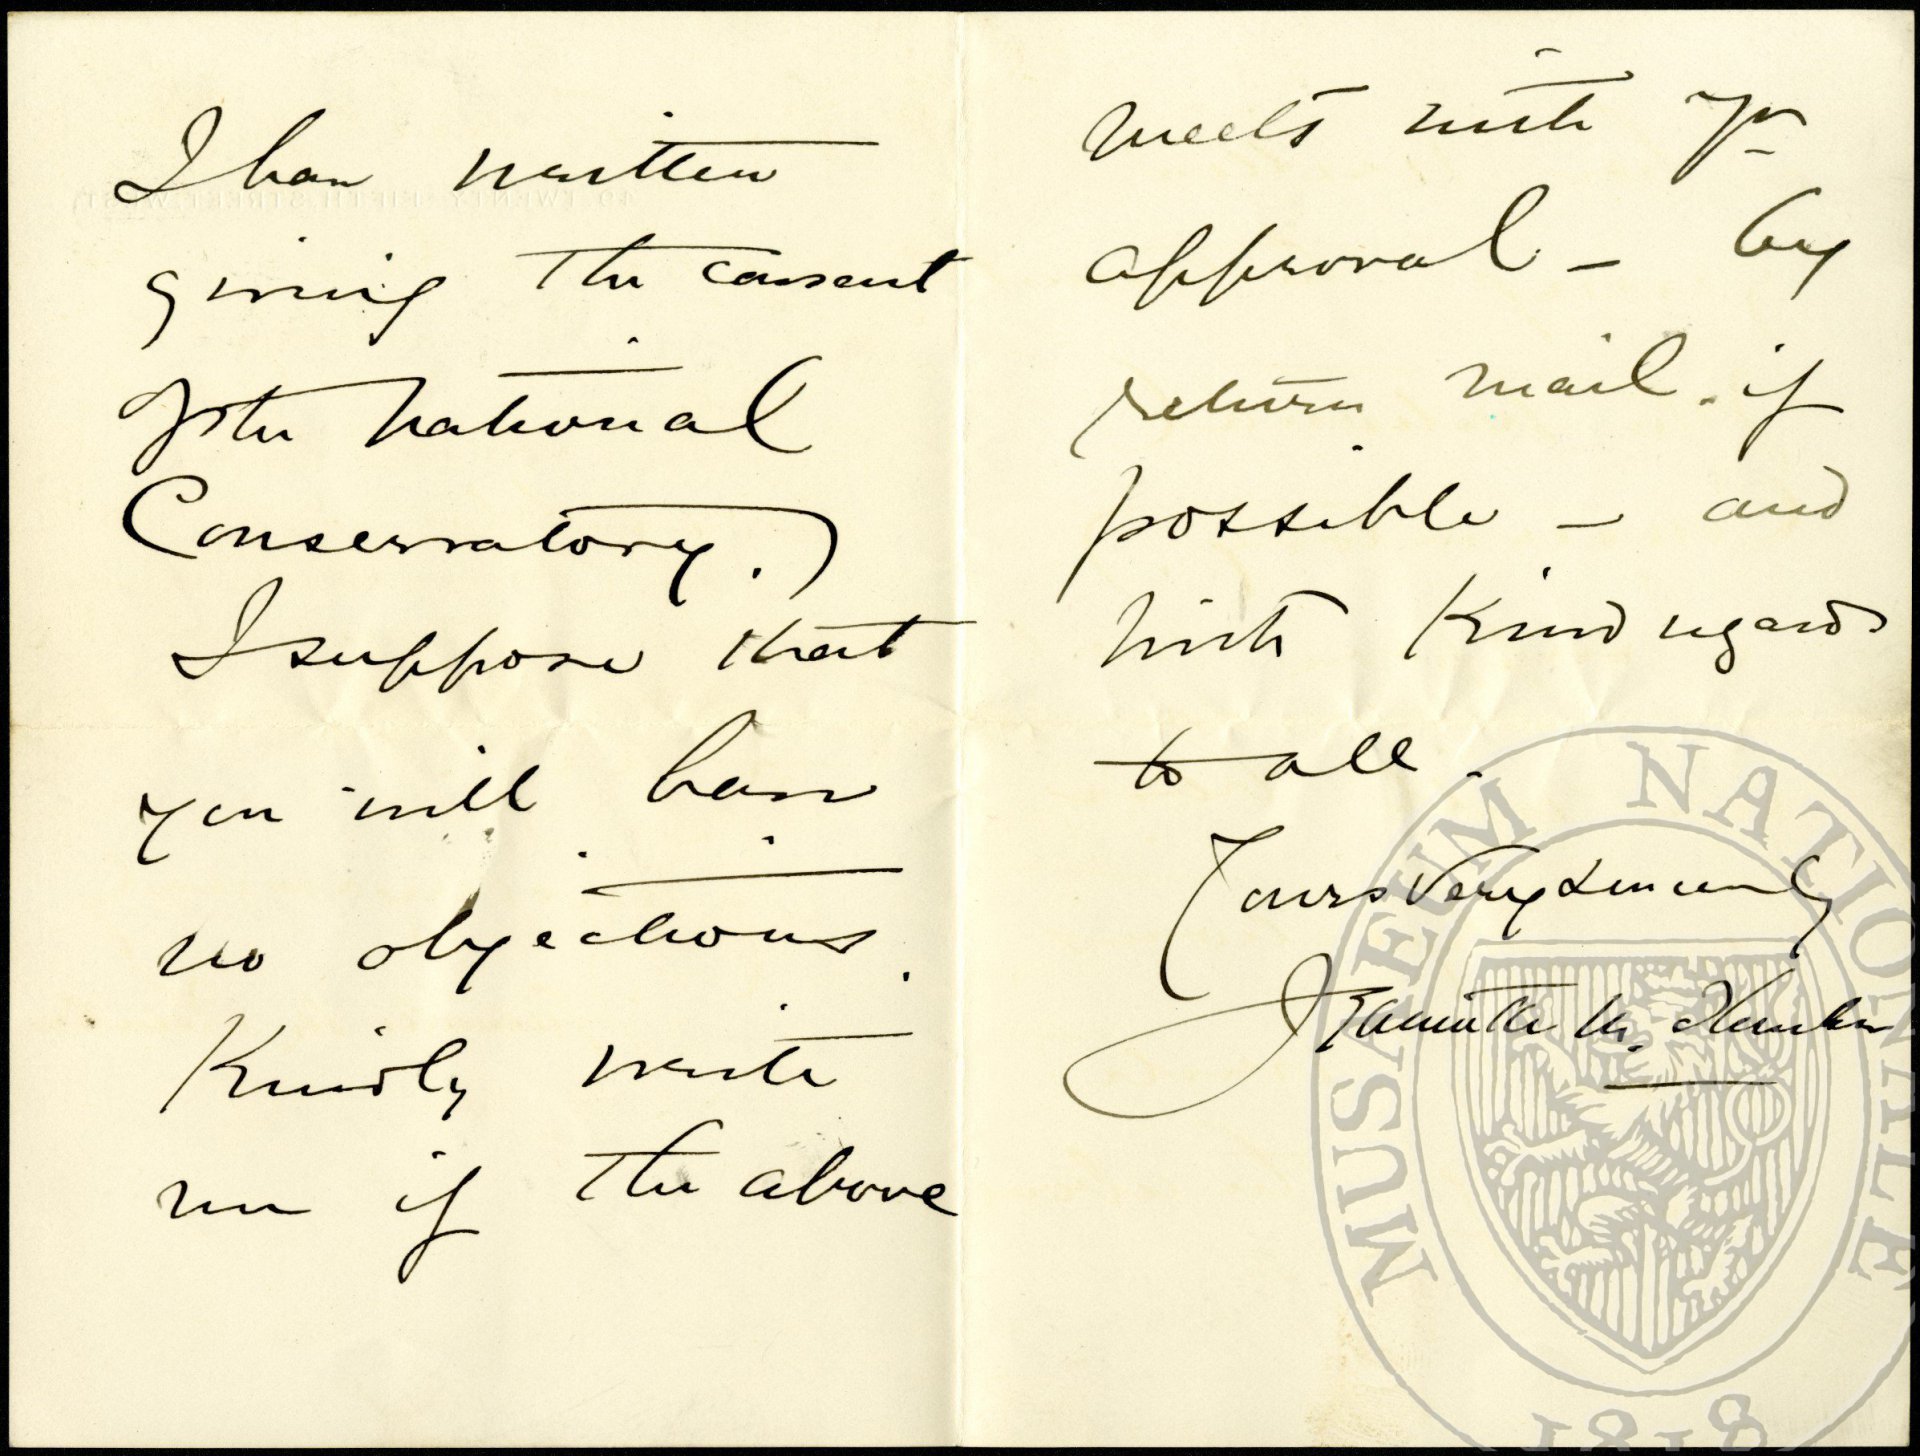 I have written
giving the consent
of the National
Conservatory.)
I suppose that
you will have
no objections.
Kindly write
me if the above
meets with yr
approval – by
return mail. if
possible – and
with Kind regards
to all.
Yours Very Sincerely
Jeannette M. Thurber
MUSAEUM NATIONALE
1818